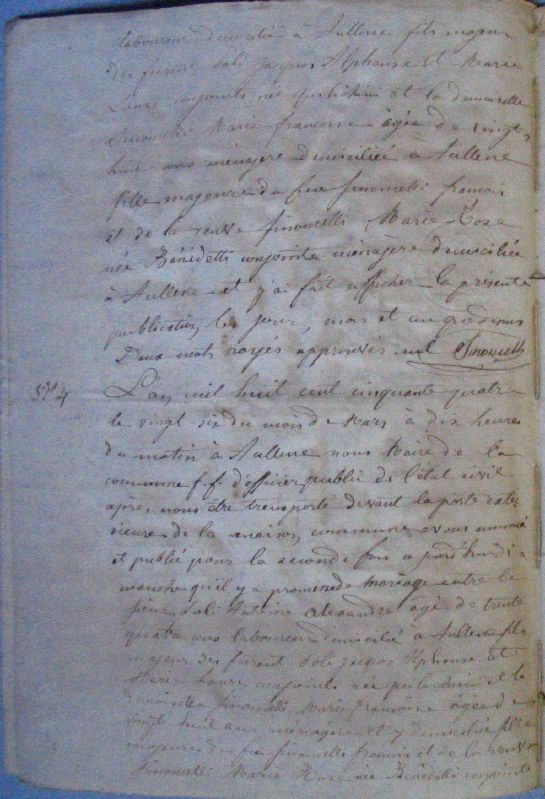 laboureur domicilié à Aullene fils majeur
des furent Joli Jacques Alphonse et Marie
Laure conjoints née Quilichini et la demoiselle
Simonetti Marie françoise âgée de vingt
huit ans ménagère domiciliée à Aullene
fille majeure du feu Simonetti francois
et de la veuve Simonetti Marie Rose
née Bénédetti conjointe ménagère domiciliée
à Aullene et j'ai fait afficher la présente
publication les jour, mois et an que dessus
Deux mots rayés approuvés nul Simonetti
N° 4 L'an mil huit cent cinquante quatre
le vingt six du mois de Mars à dix heures
du matin à Aullene nous Maire de la
commune f.f. d'officier public de l'état civil
après nous être transporté devant la porte exté
rieure de la maison commune avons annoncé
et publié pour la seconde fois aujourd'hui di
manche qu'il y a promesse de mariage entre le
sieur Joli Antoine Alexandre agé de trente
quatre ans laboureur domicilié à Aullene fils
majeur des furent Joli Jacques Alphonse et
Marie Laure conjoints née Quilichini et la
demoiselle Simonetti Marie françoise agée de
vingt huit ans ménagère et y domiciliée fille
majeure du feu Simonetti francois et de la veuve
Simonetti Marie Rose née Bénédetti conjointe